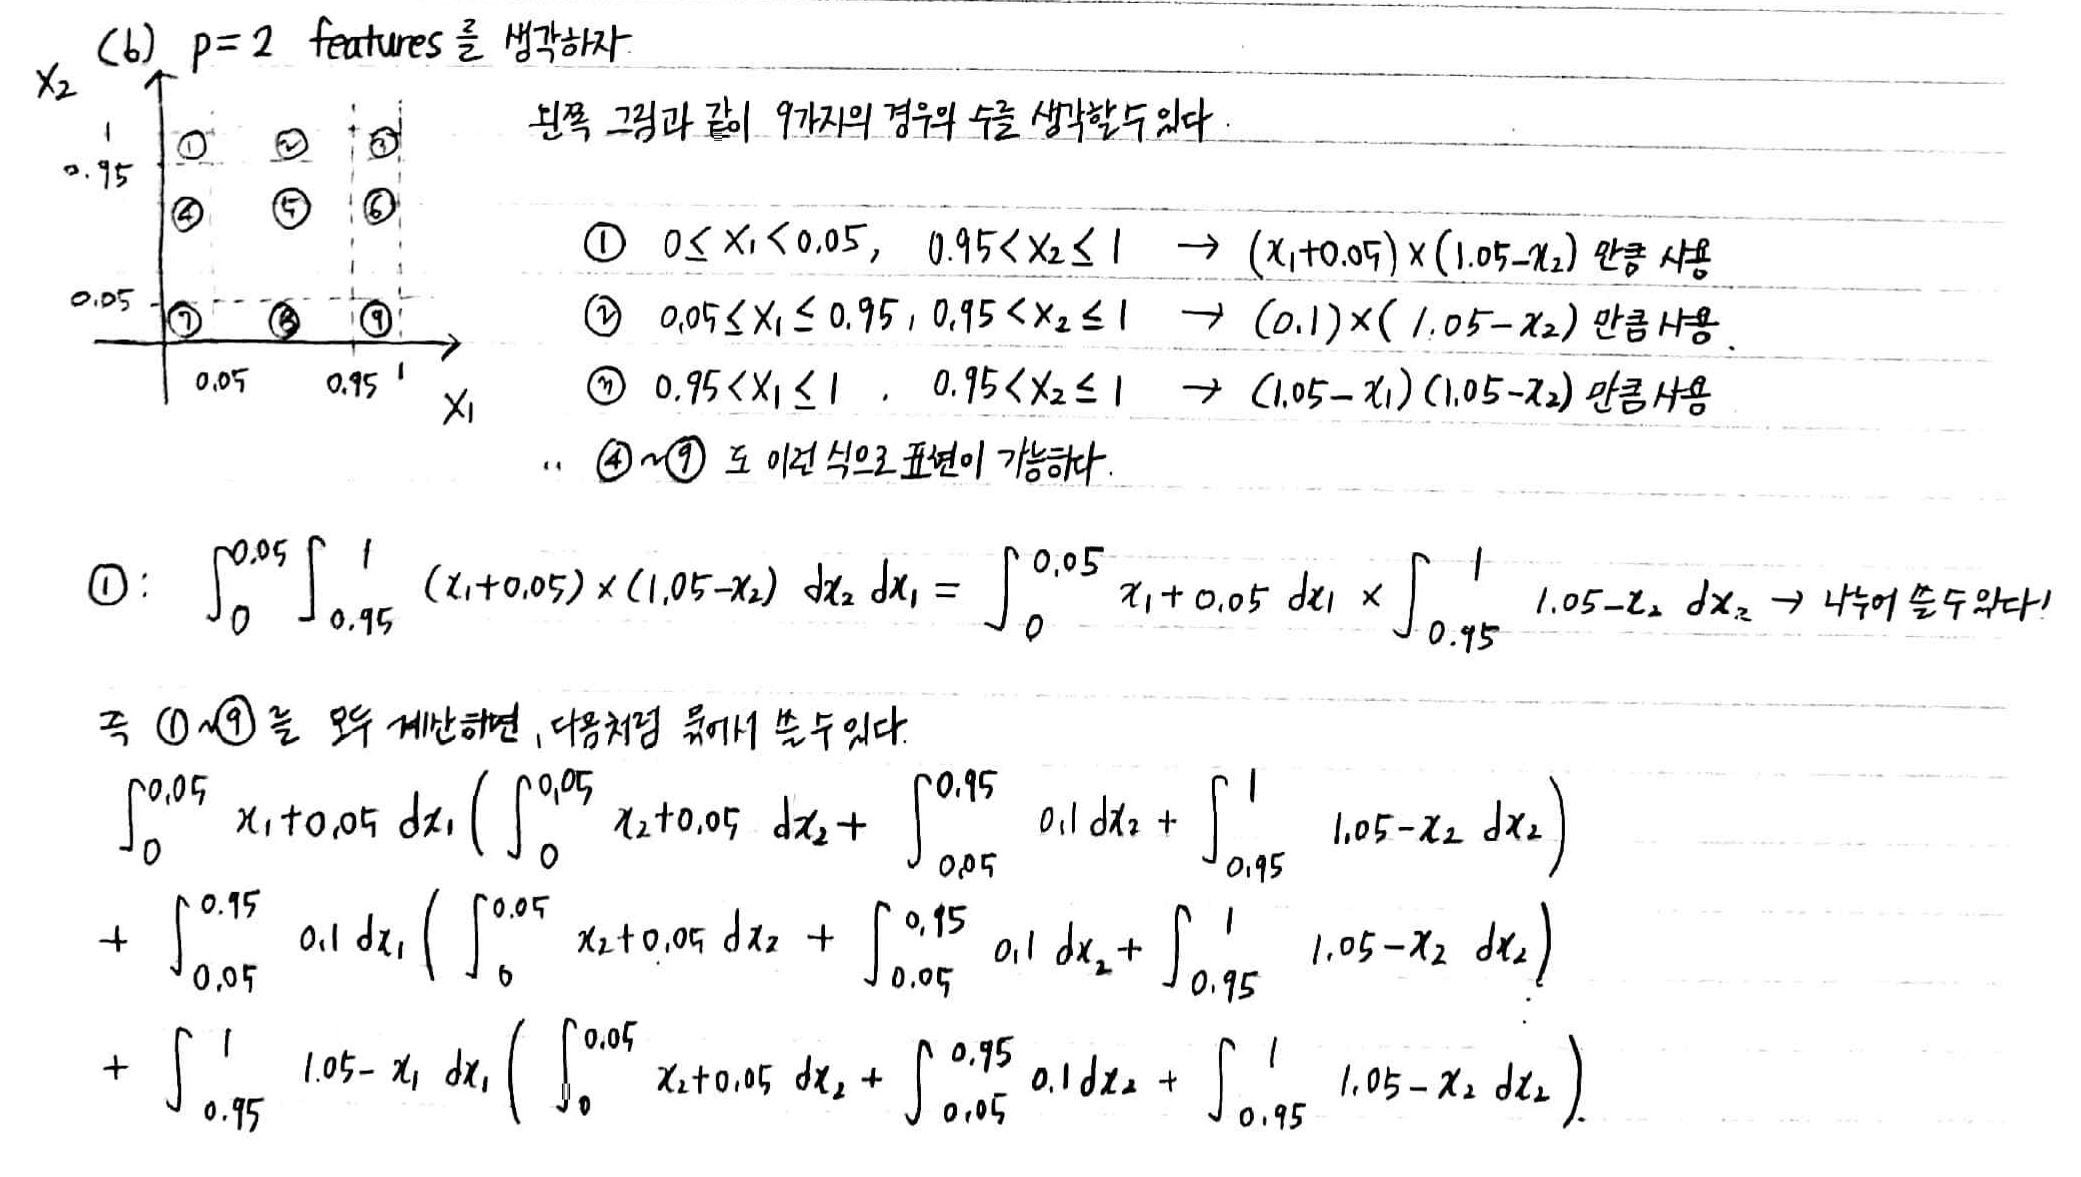 (b) p=2 features를 생각하자
왼쪽 그림과 같이 9가지의 경우의 수를 생각할 수 있다.
X₂
1
0.95
0.05
① ② ③
④ ⑤ ⑥
⑦ ⑧ ⑨
0.05 0.95 1
X₁
① 0≤X₁<0.05, 0.95<X₂≤1 → (x₁+0.05)×(1.05-x₂) 만큼 사용
② 0.05≤X₁≤0.95, 0.95<X₂≤1 → (0.1)×(1.05-x₂) 만큼 사용.
③ 0.95<X₁≤1, 0.95<X₂≤1 → (1.05-x₁)(1.05-x₂) 만큼 사용
‥ ④~⑨ 도 이런 식으로 표현이 가능하다.
①: ∫₀^0.05 ∫_0.95^1 (x₁+0.05)×(1.05-x₂) dx₂ dx₁ = ∫₀^0.05 x₁+0.05 dx₁ × ∫_0.95^1 1.05-x₂ dx₂ → 나누어 쓸 수 있다!
즉 ①~⑨를 모두 계산하면, 다음처럼 묶어서 쓸 수 있다.
∫₀^0.05 x₁+0.05 dx₁ (∫₀^0.05 x₂+0.05 dx₂ + ∫_0.05^0.95 0.1 dx₂ + ∫_0.95^1 1.05-x₂ dx₂)
+ ∫_0.05^0.95 0.1 dx₁ (∫₀^0.05 x₂+0.05 dx₂ + ∫_0.05^0.95 0.1 dx₂ + ∫_0.95^1 1.05-x₂ dx₂)
+ ∫_0.95^1 1.05-x₁ dx₁ (∫₀^0.05 x₂+0.05 dx₂ + ∫_0.05^0.95 0.1 dx₂ + ∫_0.95^1 1.05-x₂ dx₂).